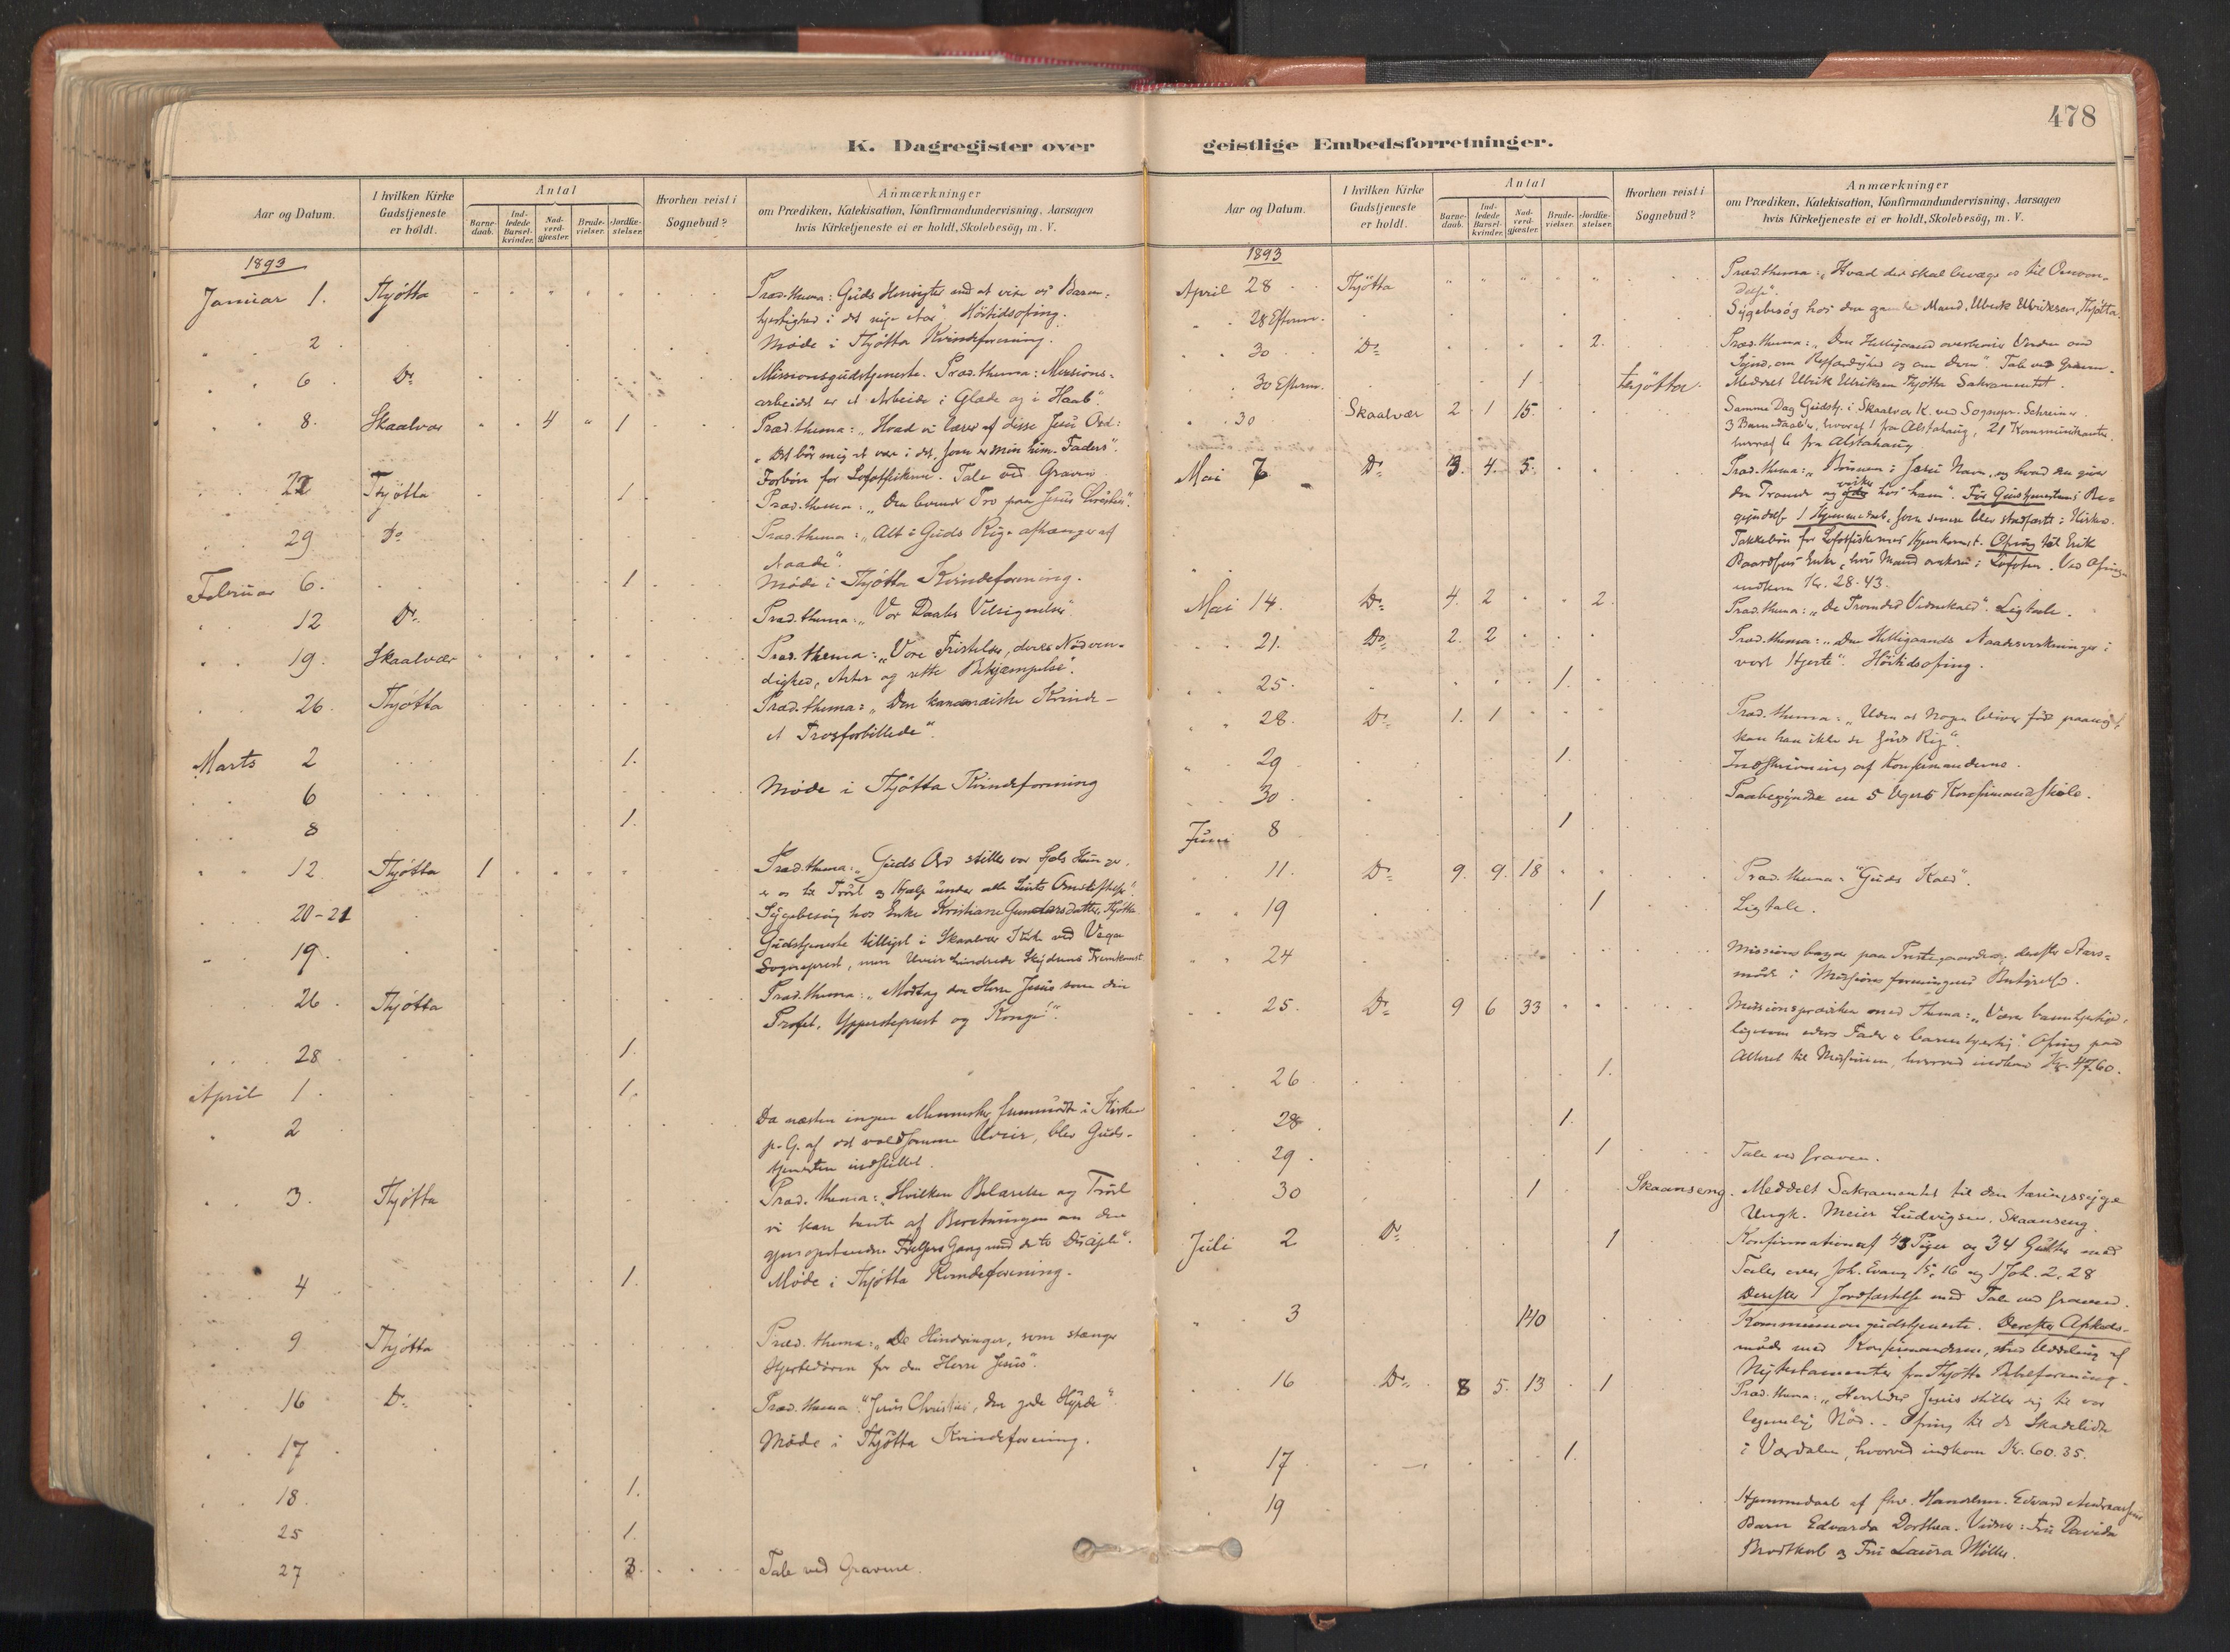 478
K. Dagregister over
Aar og Datum.
I hvilken Kirke Gudstjeneste er holdt.
Antal
Barnedaab.
Indledede Barselkvinder.
Nadverdgjæster.
Brudevielser.
Jordfæstelser.
Hvorhen reist i Sognebud?
Anmærkninger
om Prædiken, Katekisation, Konfirmandundervisning, Aarsagen
hvis Kirketjeneste ei er holdt, Skolebesög, m. V.
1893
Januar 1. Thjøtta Præd. thema: Guds Hensigter med at vise os Barm-
hjertighed i det nye Aar". Höitidsofring.
2 Møde i Thjøtta Kvindeforening.
6 Do Missionsgudstjeneste. Præd. thema: Missions-
arbeidet er et Arbeide i Glæde og i Haab".
8. Skaalvær 4 1 Præd. thema: "Hvad vi lærer af disse Jesu Ord:
"Det bör mig at være i det, som er min him. Faders".
Forbön for Lofotfiskerne. Tale ved Graven
22 Thjøtta 1. Præd. thema: "Den levende Tro paa Jesus Christus".
29 Do Præd. thema: "Alt i Guds Rige afhænger af
Naade".
Februar 6. 1 Møde i Thjøtta Kvindeforening.
12 Do Præd. thema: "Vor Daabs Velsignelse"
19. Skaalvær Præd. thema: "Vore Fristelser, deres Nødven-
dighed, Arter og rette Bekjæmpelse".
26. Thjøtta Præd. thema: "Den kananæiske Kvinde –
et Trosforbillede".
Marts 2 1.
6 Møde i Thjøtta Kvindeforening
8 1.
12. Thjøtta 1 Præd. thema: "Guds Ord stiller vor Sjæls Hunger,
er os til Tröst og Hjælp under alle Livets Omskiftelser".
20-21 Sygebesög hos Enke Kristiane Gundersdatter, Thjøtta
19. Gudstjeneste tillyst i Skaalvær Kirke ved Vega
Sogneprest, men Uveir hindrede Skydsens Fremkomst
26. Thjøtta Præd. thema: "Modtag den Herre Jesus som din
Profet, Ypperstepræst og Konge!".
28 1.
April 1. 1.
2 Da næsten ingen Mennesker fremmødte i Kirken
p. G. af det voldsomme Uveir, blev Guds-
tjenesten indstillet.
3. Thjøtta Præd. thema: Hvilken Belærelse og Tröst
vi kan hente af Beretningen om den
gjenopstandne Frelsers Gang med de to Disciple".
4 1. Møde i Thjøtta Kvindeforening.
9 Thjøtta Præd. thema: "De Hindringer, som stænger
Hjertedören for den Herre Jesus".
16 Do Præd. thema: "Jesus Christus, den gode Hyrde".
17 Møde i Thjøtta Kvindeforening.
18. 1.
25 1.
27 3. Tale ved Gravene.
geistlige Embedsforretninger.
Aar og Datum.
I hvilken Kirke Gudstjeneste er holdt.
Antal
Barnedaab.
Indledede Barselkvinder.
Nadverdgjæster.
Brudevielser.
Jordfæstelser.
Hvorhen reist i Sognebud?
Anmærkninger
om Prædiken, Katekisation, Konfirmandundervisning, Aarsagen
hvis Kirketjeneste ei er holdt, Skolebesög, m. V.
1893
April 28 Thjøtta Præd. thema: "Hvad der skal bevæge os til Omven-
delse".
28 Efterm. Sygebesög hos den gamle Mand, Ulrik Ulriksen, Thjøtta.
30 Do 2. Præd. thema: "Den Helligaand overbeviser Verden om
Synd, om Retfærdighed og om Dom". Tale ved Graven.
30 Efterm. 1 Thjøtta. Meddelt Ulrik Ulriksen Thjøtta Sakramentet.
30 Skaalvær 2 1 15. Samme Dag Gudstj. i Skaalvær K. ved Sognepr. Schreiner.
3 Barnedaab, hvoraf 1 fra Alstahaug, 21 Kommunikanter,
hvoraf 6 fra Alstahaug
Mai 7 Do 3. 4. 5. Præd. thema: "Bönnen i Jesu Navn, og hvad den giver
den Troende og virker hos ham". För Gudstjenestens Be-
gyndelse 1 Hjemmedaab, som senere blev stadfæstet i Kirken.
Takkebön for Lofotfiskernes Hjemkomst. Ofring til Erik
Baardsens Enke, hvis Mand omkom i Lofoten. Ved Ofring-
indkom Kr. 28.43.
Mai 14. Do 4. 2 2. Præd. thema: "De Troendes Vidnekald". Ligtale.
21. Do 2. 2 Præd. thema: "Den Helligaands Naadevirkninger i
vort Hjerte". Höitidsofring.
25. 1.
28. Do 1. 1 Præd. thema: "Uden at Nogen bliver født paany,
kan han ikke se Guds Rige".
29 1. Indskrivning af Konfirmanderne.
30 Paabegyndte en 5 Ugers Konfirmandskole.
Juni 8 1
11. Do 9. 9. 18 Præd. thema: "Guds Kald".
19 1 Ligtale.
24 Missionsbazar paa Prestegaarden, derefter Aars-
møde i Missionsforeningens Bestyrelse.
25. Do 9 6 33 Missionsprædiken med Thema: "Være barmhjertige,
ligesom eders Fader er barmhjertig". Ofring paa
Alteret til Missionen, hvorved indkom Kr. 47.60.
26 1.
28 1.
29. 1 Tale ved Graven.
30 1 Skaanseng. Meddelt Sakramentet til den tæringssyge
Ungk. Meier Ludvigsen, Skaanseng.
Juli 2 Do 1 Konfirmation af 43 Piger og 34 Gutter med
Taler over Joh. Evang. 15, 16 og 1 Joh. 2, 28
Derefter 1 Jordfæstelse med Tale ved Graven.
3 140 Kommuniongudstjeneste. Derefter Afskeds-
møde med Konfirmanderne, med Uddeling af
Nytestamenter fra Thjøtta Bibelforening.
16 Do 8 5. 13 1 Præd. thema: "Hvorledes Jesus stiller sig til vor
legemlige Nød. Ofring til de Skadelidte
i Værdalen, hvorved indkom Kr. 60.35.
17 1.
19 Hjemmedaab af Handelsm. Edvard Andreassens
Barn Edvarda Dorthea. Vidner: Fru Davida
Brodtkorb og Fru Laura Møller.